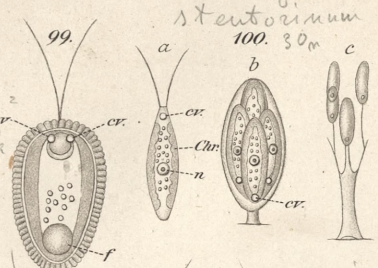 stentorinum
99.
100.
30m
a
b
c
v
cv.
cv.
Chr.
n
cv.
f